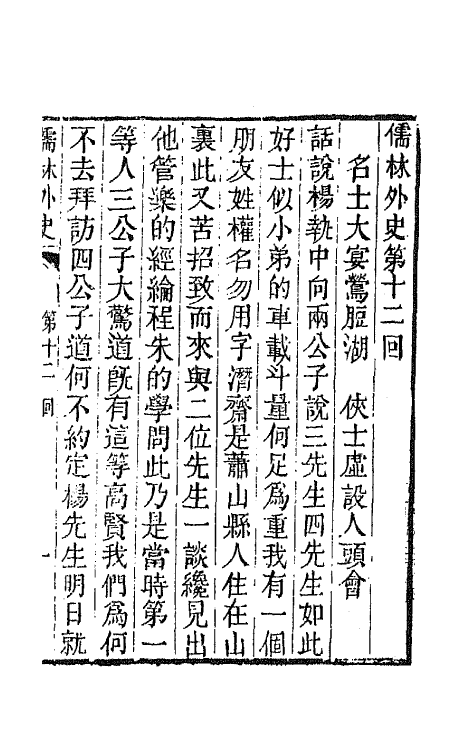 儒林外史第十二回
名士大宴鶯脰湖　俠士虛設人頭會
話說楊執中向兩公子說三先生四先生如此
好士似小弟的車載斗量何足爲重我有一個
朋友姓權名勿用字潛齋是蕭山縣人住在山
裏此又苦招致而來與二位先生一談纔見出
他管樂的經綸程朱的學問此乃是當時第一
等人三公子大驚道旣有這等高賢我們爲何
不去拜訪四公子道何不約定楊先生明日就
儒林外史　第十二回　一